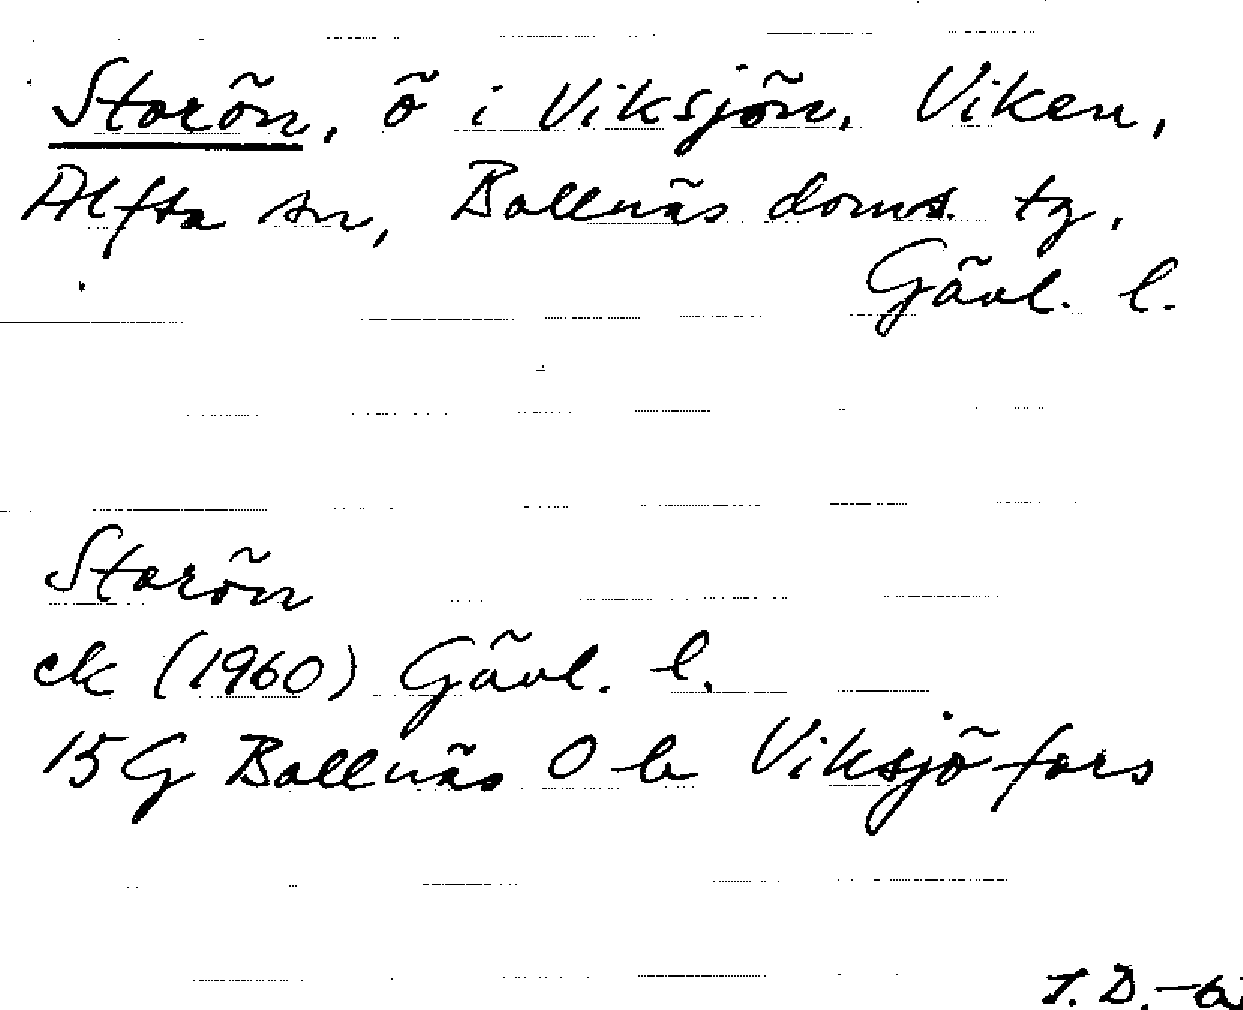 Storön, ö i Viksjön, Viken,
Alfta sn, Bollnäs doms. tg.
Gävl. l.
Storön
ek (1960) Gävl. l.
15G Bollnäs O b Viksjöfors
T. D. -